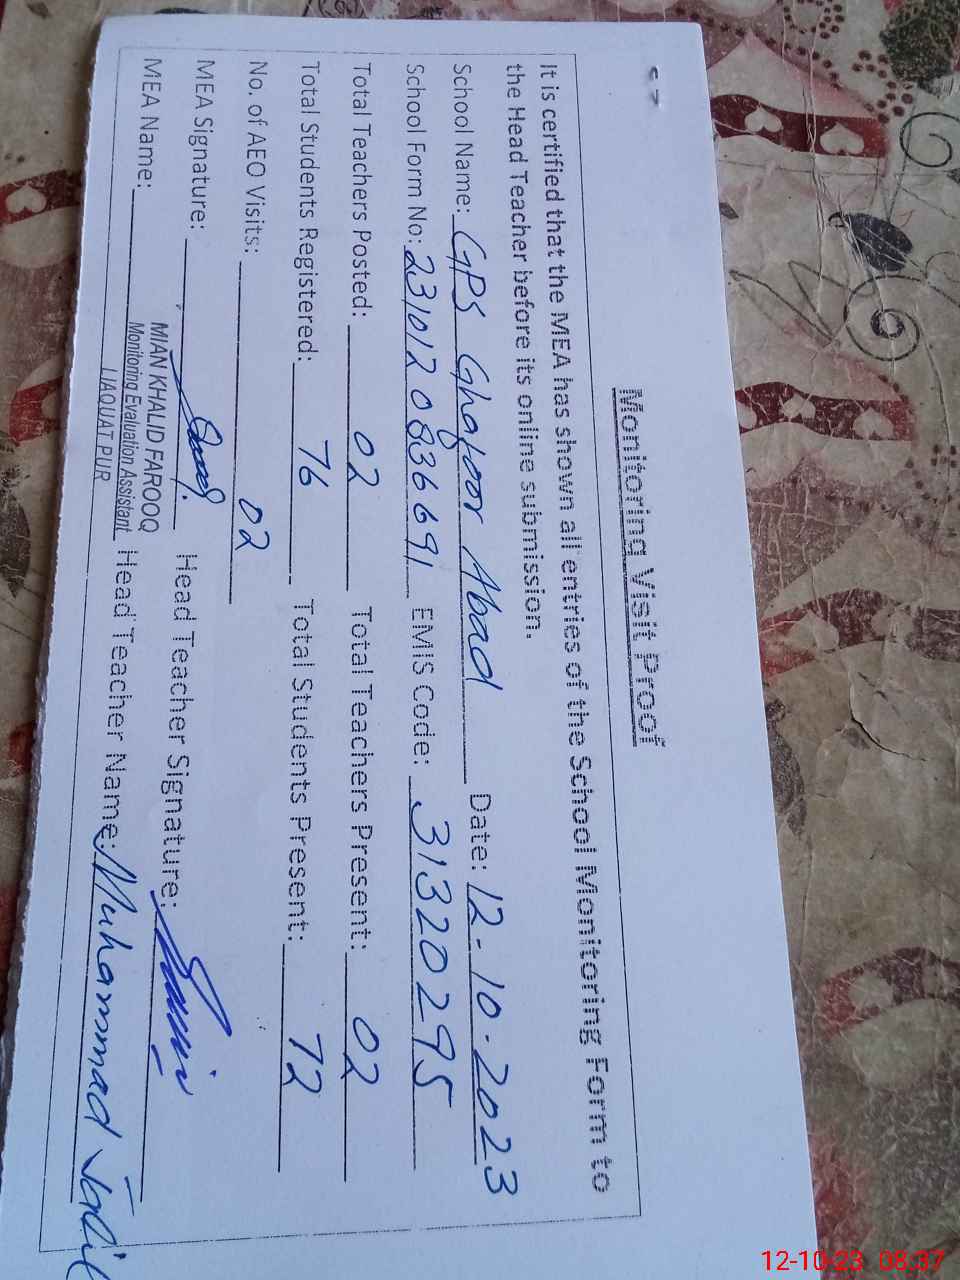 Monitoring Visit Proof
It is certified that the MEA has shown all entries of the School Monitoring Form to
the Head Teacher before its online submission.
School Name: GPS Ghafoor Abad Date: 12-10-2023
School Form No: 231012 0836691 EMIS Code: 31320295
Total Teachers Posted: 02 Total Teachers Present: 02
Total Students Registered: 76 Total Students Present: 72
No. of AEO Visits: 02
MEA Signature: Head Teacher Signature:
MEA Name: MIAN KHALID FAROOQ Head Teacher Name: Muhammad
Monitoring Evaluation Assistant
LIAQUAT PUR
12-10-23 08:37